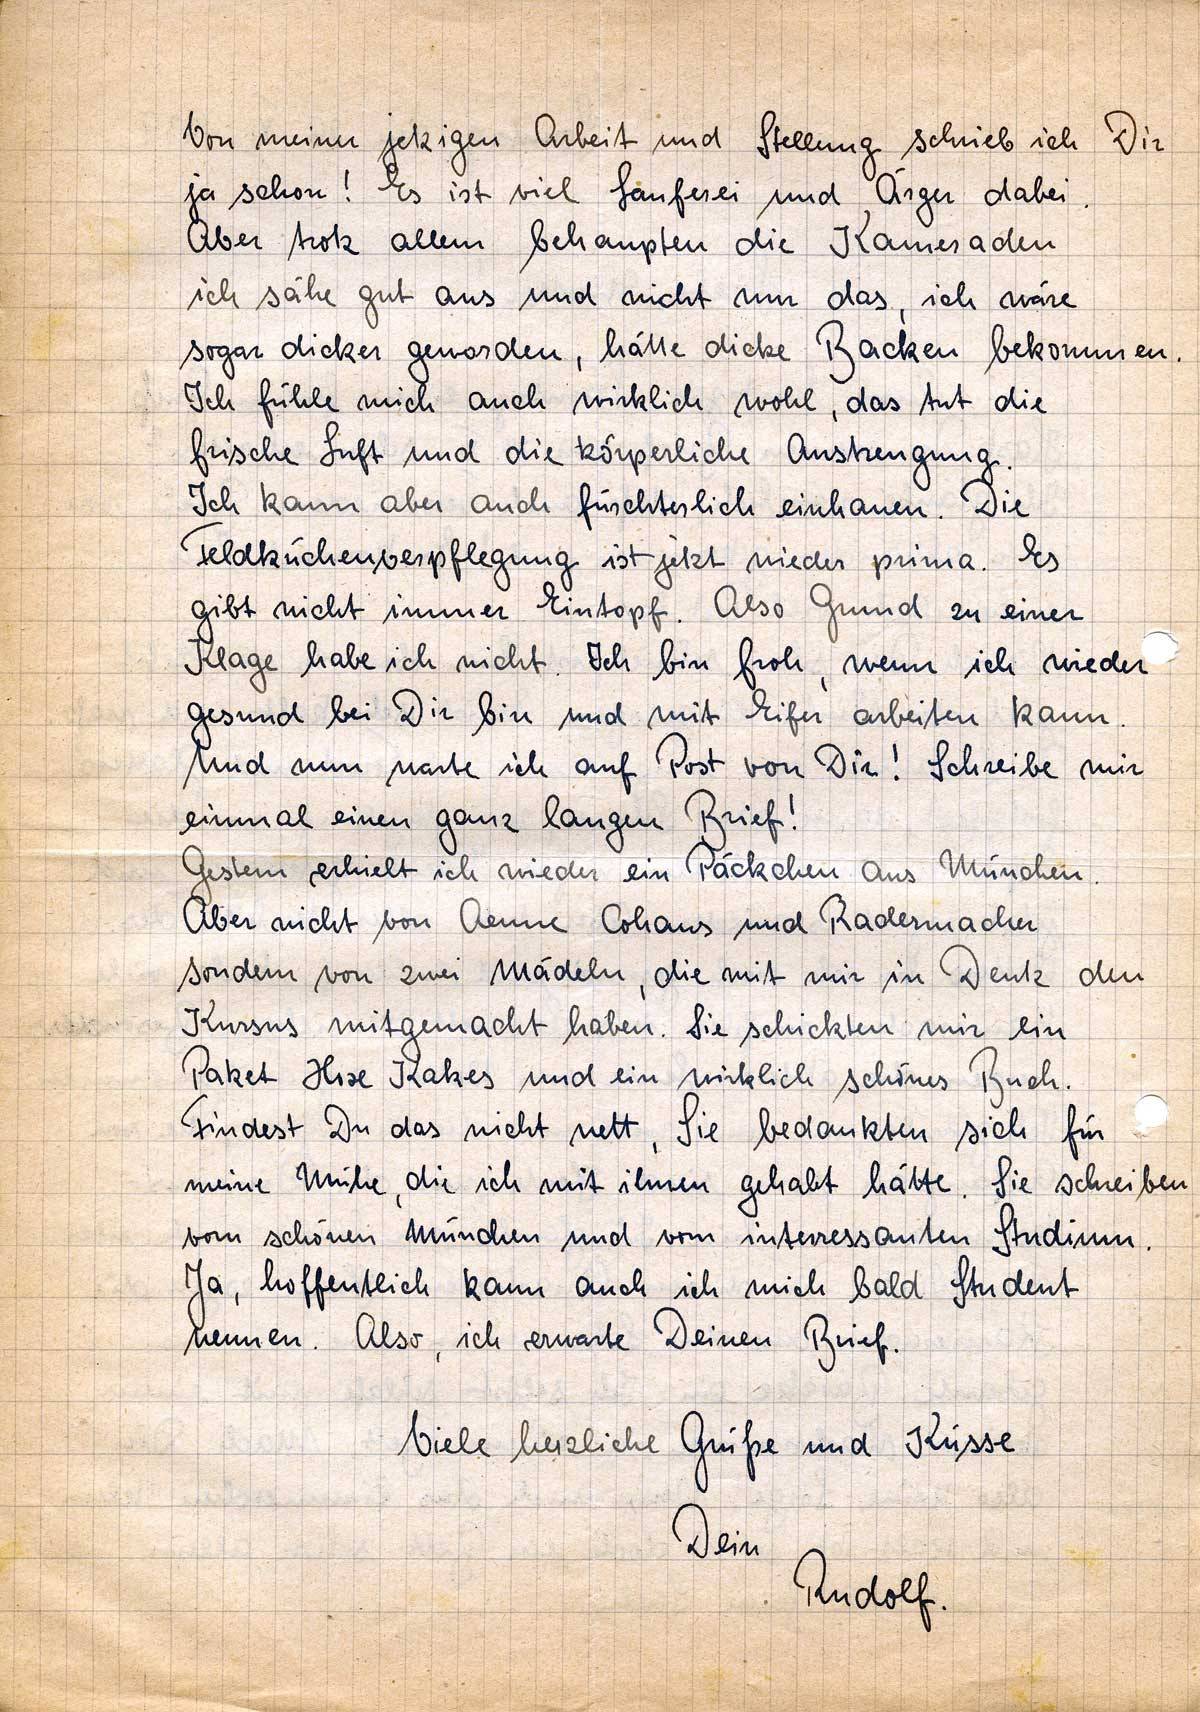 Von meiner jetzigen Arbeit und Stellung schrieb ich Dir
ja schon! Es ist viel Lauferei und Ärger dabei.
Aber trotz allem behaupten die Kameraden
ich sähe gut aus und nicht nur das, ich wäre
sogar dicker geworden, hätte dicke Backen bekommen.
Ich fühle mich auch wirklich wohl, das tut die
frische Luft und die körperliche Anstrengung.
Ich kann aber auch fürchterlich einhauen. Die
Feldküchenverpflegung ist jetzt wieder prima. Es
gibt nicht immer Eintopf. Also Grund zu einer
Klage habe ich nicht. Ich bin froh, wenn ich wieder
gesund bei Dir bin und mit Eifer arbeiten kann.
Und nun warte ich auf Post von Dir! Schreibe mir
einmal einen ganz langen Brief!
Gestern erhielt ich wieder ein Päckchen aus München.
Aber nicht von Aenne Cohaus und Radermacher
sondern von zwei Mädeln, die mit mir in Deutz den
Kursus mitgemacht haben. Sie schickten mir ein
Paket Kakes und ein wirklich schönes Buch.
Findest Du das nicht nett, Sie bedankten sich für
meine Mühe, die ich mit ihnen gehabt hätte. Sie schreiben
vom schönen München und vom interressanten Studium.
Ja, hoffentlich kann auch ich mich bald Student
nennen. Also, ich erwarte Deinen Brief.
Viele herzliche Grüße und Küsse
Dein
Rudolf.